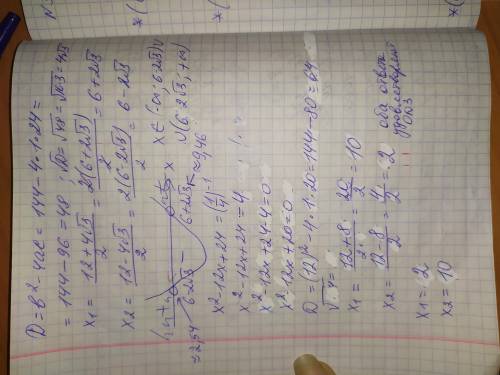 D = b² - 4ac = 144 - 4·1·24 =
= 144 - 96 = 48 ; √D = √48 = √16·3 = 4√3
x₁ = (12 + 4√3)/2 = 2(6 + 2√3)/2 = 6 + 2√3
x₂ = (12 - 4√3)/2 = 2(6 - 2√3)/2 = 6 - 2√3
x ∈ (-∞; 6-2√3) ∪
∪ (6+2√3; +∞)
6-2√3 6+2√3 x
≈ 2,54
x² - 12x + 24 = (1/4)⁻¹
x² - 12x + 24 = 4
x² - 12x + 24 - 4 = 0
x² - 12x + 20 = 0
D = (12)² - 4·1·20 = 144 - 80 = 64
x₁ = (12 + 8)/2 = 20/2 = 10
x₂ = (12 - 8)/2 = 4/2 = 2
x₁ = 2
x₂ = 10
оба ответа
удовлетворяют
ОДЗ